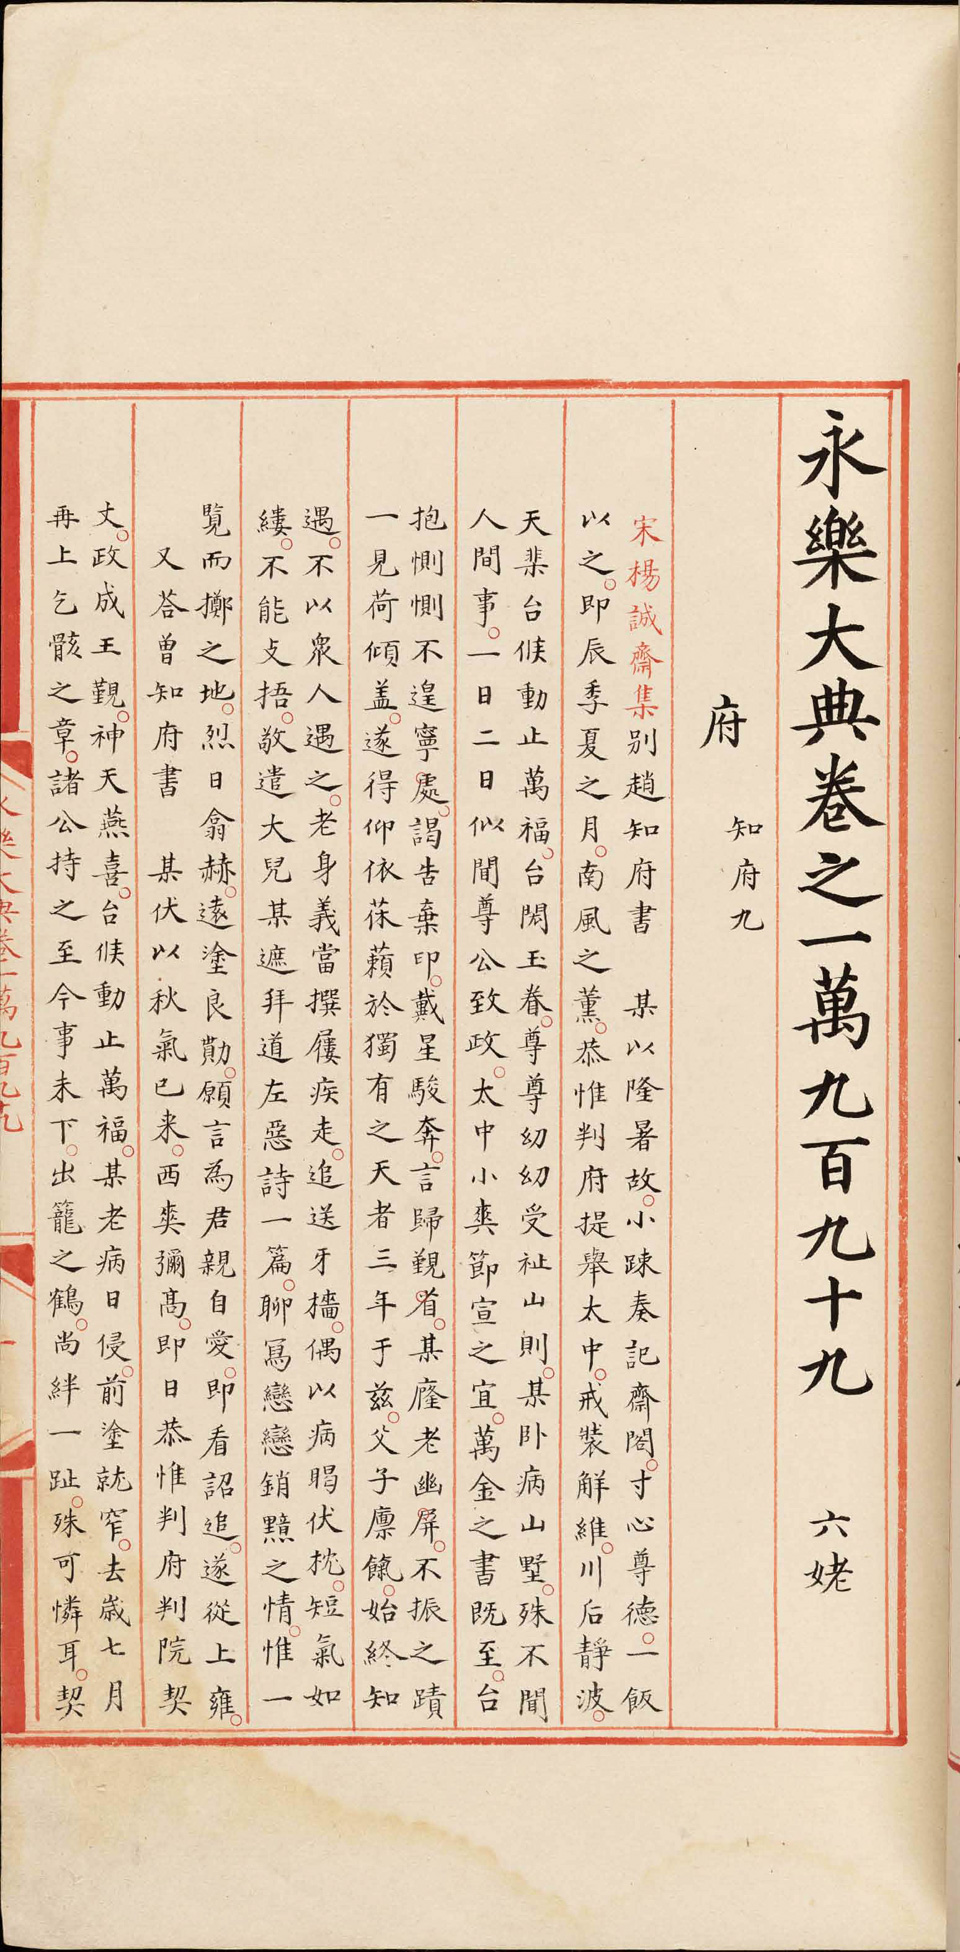 永樂大典卷之一萬九百九十九 六姥
府 知府九
宋楊誠齋集别趙知府書 某以隆暑故小踈奏記齋閤寸心尊德一飯
以之即辰季夏之月南風之薰恭惟判府提舉太中戒裝解維川后靜波
天棐台候動止萬福台閎玉眷尊尊幼幼受祉山則某卧病山墅殊不聞
人間事一日二日似聞尊公致政太中小爽節宣之宜萬金之書既至台
抱惻惻不遑寧處謁告棄印戴星駿奔言歸覲省某癃老幽屏不振之蹟
一見荷傾盖遂得仰依葆藾於獨有之天者三年于兹父子廪餼始終知
遇不以衆人遇之老身義當撰屨疾走追送牙檣偶以病暍伏枕短氣如
縷不能支捂敬遣大兒某遮拜道左惡詩一篇聊寫戀戀銷黯之情惟一
覽而擲之地烈日翕赫遠塗良勩願言為君親自愛即看詔追遂從上雍
又荅曾知府書 某伏以秋氣已来西爽彌髙即日恭惟判府判院契
丈政成王覲神天燕喜台候動止萬福某老病日侵前塗就窄去歲七月
再上乞骸之章諸公持之至今事未下出籠之鶴尚絆一趾殊可憐耳契
永樂大典卷一萬九百九十九
一